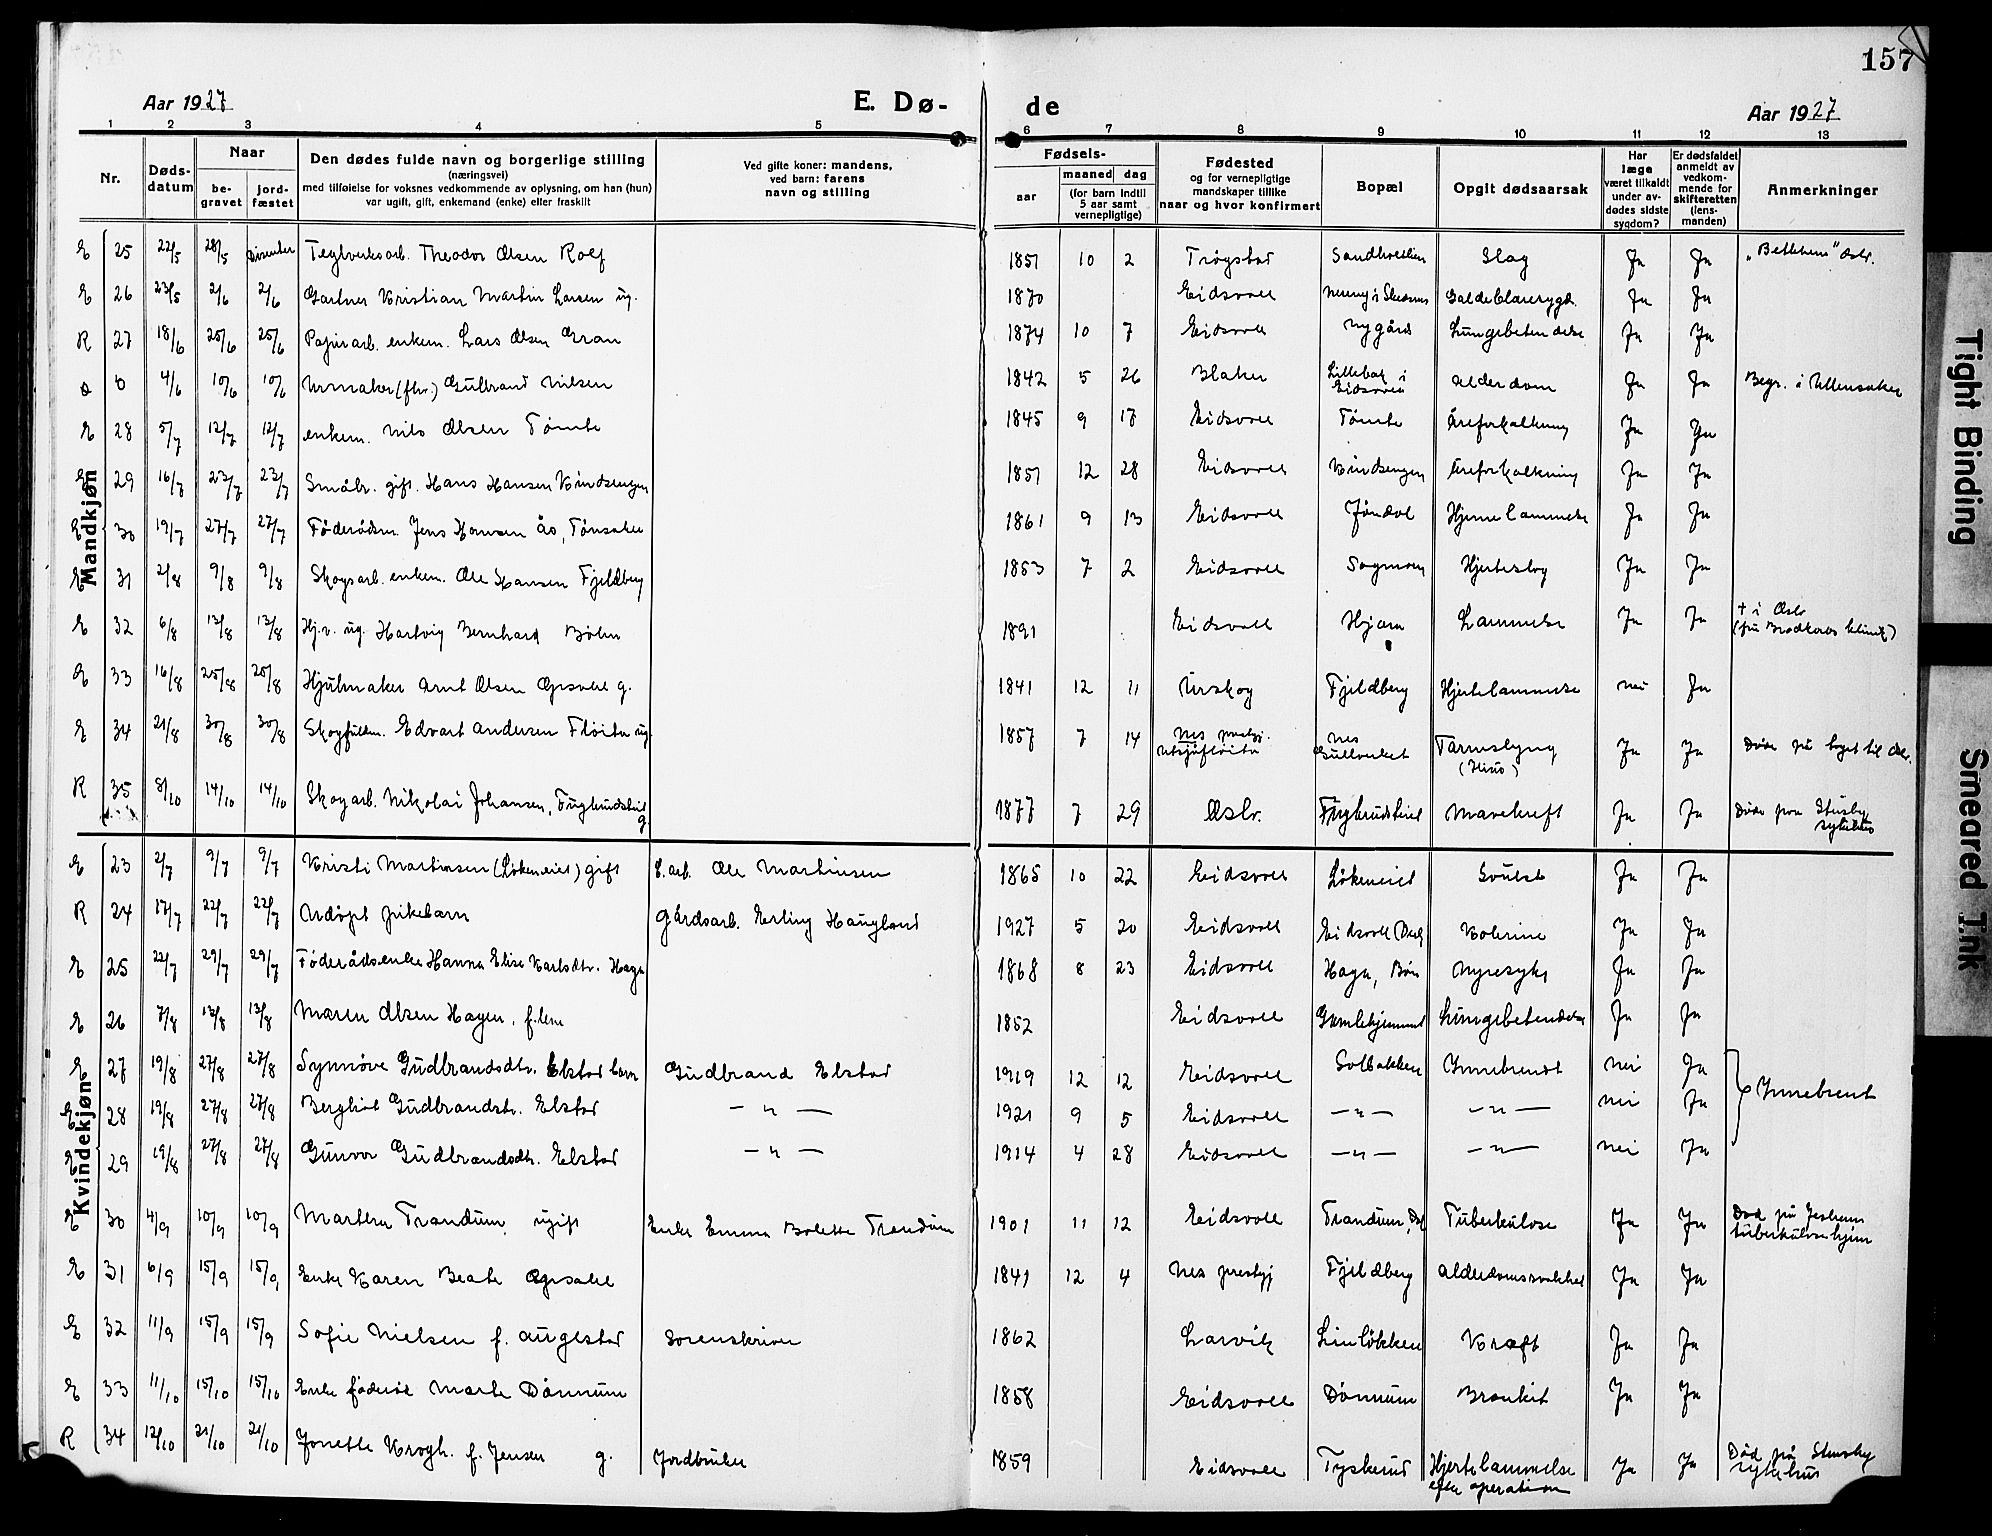 157
Aar 1927
E. Dø-
de
Aar 1927
1 2 3 4 5 6 7 8 9 10 11 12 13
Nr.
Døds-
datum
Naar
be-
gravet
jord-
fæstet
Den dødes fulde navn og borgerlige stilling
(næringsvei)
med tilføielse for voksnes vedkommende av oplysning, om han (hun)
var ugift, gift, enkemand (enke) eller fraskilt
Ved gifte koner: mandens,
ved barn: farens
navn og stilling
Fødsels-
aar
maaned dag
(for barn indtil
5 aar samt
vernepligtige)
Fødested
og for vernepligtige
mandskaper tillike
naar og hvor konfirmert
Bopæl
Opgit dødsaarsak
Har
læge
været tilkaldt
under av-
dødes sidste
sygdom?
Er dødsfaldet
anmeldt av
vedkom-
mende for
skifteretten
(lens-
manden)
Anmerkninger
Mandkjøn
E 25 22/5 28/5 Teglverksarb. Theodor Olsen Rolf 1851 10 2 Trøgstad Slag Ja Ja
E 26 23/5 2/6 2/6 Gartner Kristian Martin Larsen ug. 1870 Eidsvoll Ja Ja
R 27 18/6 25/6 25/6 Papirarb. enkem. Lars Olsen Gran 1874 10 7 Eidsvoll Nygård Lungebetendelse Ja Ja
0 0 4/6 10/6 10/6 Urmaker (fhv.) Gulbrand Nilsen 1842 5 26 Blaker Alderdom Ja Ja Begr. i Ullensaker
E 28 5/7 12/7 12/7 enkem. Nils Olsen Tømte 1845 9 17 Eidsvoll Tømte Åreforkalkning Ja Ja
E 29 16/7 23/7 23/7 Småbr. gift. Hans Hansen Kvindsengen 1851 12 28 Eidsvoll Kvindsengen Åreforkalkning Ja Ja
E 30 19/7 27/7 27/7 Føderådsm. Jens Hansen Ås, Tønsaker 1861 9 13 Eidsvoll Jøndal Hjernelammelse Ja Ja
E 31 2/8 9/8 9/8 Skogsarb. enkem. Ole Hansen Fjeldberg 1853 7 2 Eidsvoll Sagmoen Hjerteslag Ja Ja
E 32 6/8 13/8 13/8 Hj.v. ug. Hartvig Bernhard Bøhn 1891 Eidsvoll Hjera Lammelse Ja Ja + i Oslo
E 33 16/8 25/8 25/8 Hjulmaker Arnt Olsen Opsahl g. 1841 12 11 Urskog Fjeldberg Hjertelammelse nei Ja
E 34 21/8 30/8 30/8 Skogfuldm. Edvart Andersen Fløiter ug. 1857 7 14 Nes prestgj. Nes
Gullverket Tarmslyng
(Ileus) Ja Ja Døde på toget til Oslo.
R 35 8/10 14/10 14/10 Skogarb. Nikolai Johansen, Fuglerudsteiet g. 1877 7 29 Oslo. Fuglerudsteiet Mavekreft Ja Ja Døde paa Stensby
sykehus
Kvindekjøn
E 23 2/7 9/7 9/7 Kristi Martinsen (Løkeneiet) gift S.arb. Ole Martinsen 1865 10 22 Eidsvoll Løkeneiet Svulst Ja Ja
R 24 17/7 22/7 22/7 Udøpt pikebarn Gårdsarb. Erling Haugland 1927 5 20 Eidsvoll Kolerine Ja Ja
E 25 22/7 29/7 29/7 Føderådsenke Hanna Elise Karlsdtr. Haga 1868 8 23 Eidsvoll Haga, Bøn Nyresyke Ja Ja
E 26 7/8 13/8 13/8 Maren Olsen Hagen, f.lem 1852 Eidsvoll Gamlehjemmet Lungebetendelse Ja Ja
E 27 19/8 27/8 27/8 Synnøve Gudbrandsdtr. Elstad barn Gudbrand Elstad 1919 12 12 Eidsvoll Solbakken Innebrendt nei Ja Innebrent
E 28 19/8 27/8 27/8 Bergliot Gudbrandsdtr. Elstad — " — 1921 9 5 Eidsvoll — " — — " — nei Ja
E 29 19/8 27/8 27/8 Gunvor Gudbrandsdtr. Elstad — " — 1914 4 28 Eidsvoll — " — — " — nei Ja
E 30 4/9 10/9 10/9 Martha Trandum, ugift Enke Emma Bolette Trandum 1901 11 12 Eidsvoll Trandum, Dal Tuberkulose Ja Ja Død på Jesheim
tuberkulosehjem
E 31 6/9 15/9 15/9 Enke Karen Beate Opsahl 1841 12 4 Nes prestgj Fjeldberg Alderdomssvakhet Ja Ja
E 32 11/9 15/9 15/9 Sofie Nielsen f. Augestad Sorenskriver 1862 Larvik Linløkken Kræft Ja Ja
E 33 11/10 15/10 15/10 Enke føderåd Marte Dønnum 1858 Eidsvoll Dønnum Bronkit Ja Ja
R 34 12/10 21/10 21/10 Jonette Krogh. f. Jensen g. Jordbruker 1859 Eidsvoll Tyskerud Hjertelammelse
efter operation Ja Ja Død på Stensby
sykehus
Tight Binding
Smeared Ink